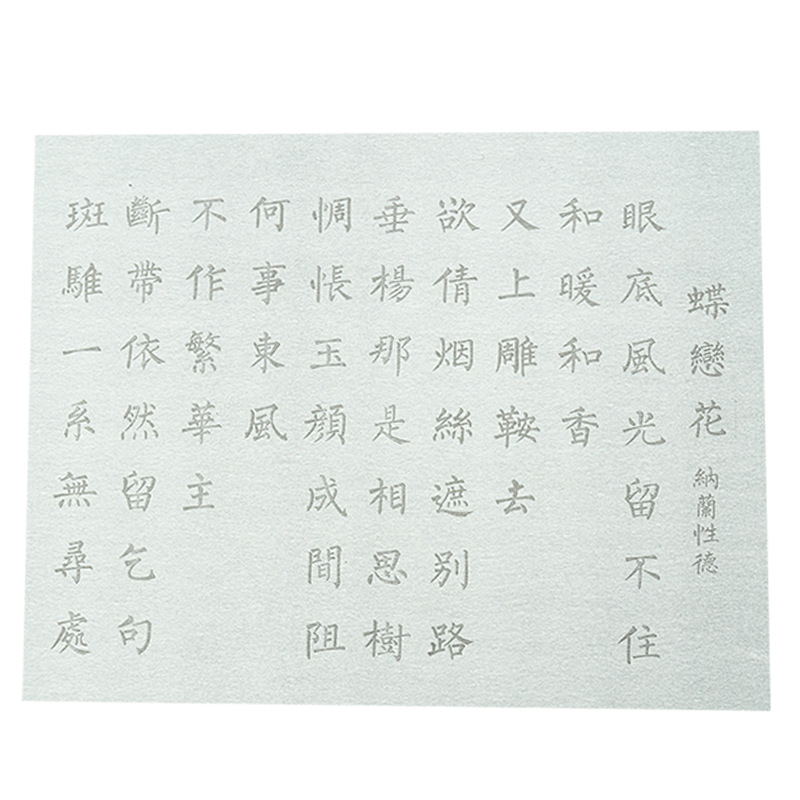 蝶戀花 納蘭性德
眼底風光留不住
和暖和香
又上雕鞍去
欲倩烟絲遮别路
垂楊那是相思樹
惆悵玉顔成間阻
何事東風
不作繁華主
斷帶依然留乞句
斑騅一系無尋處